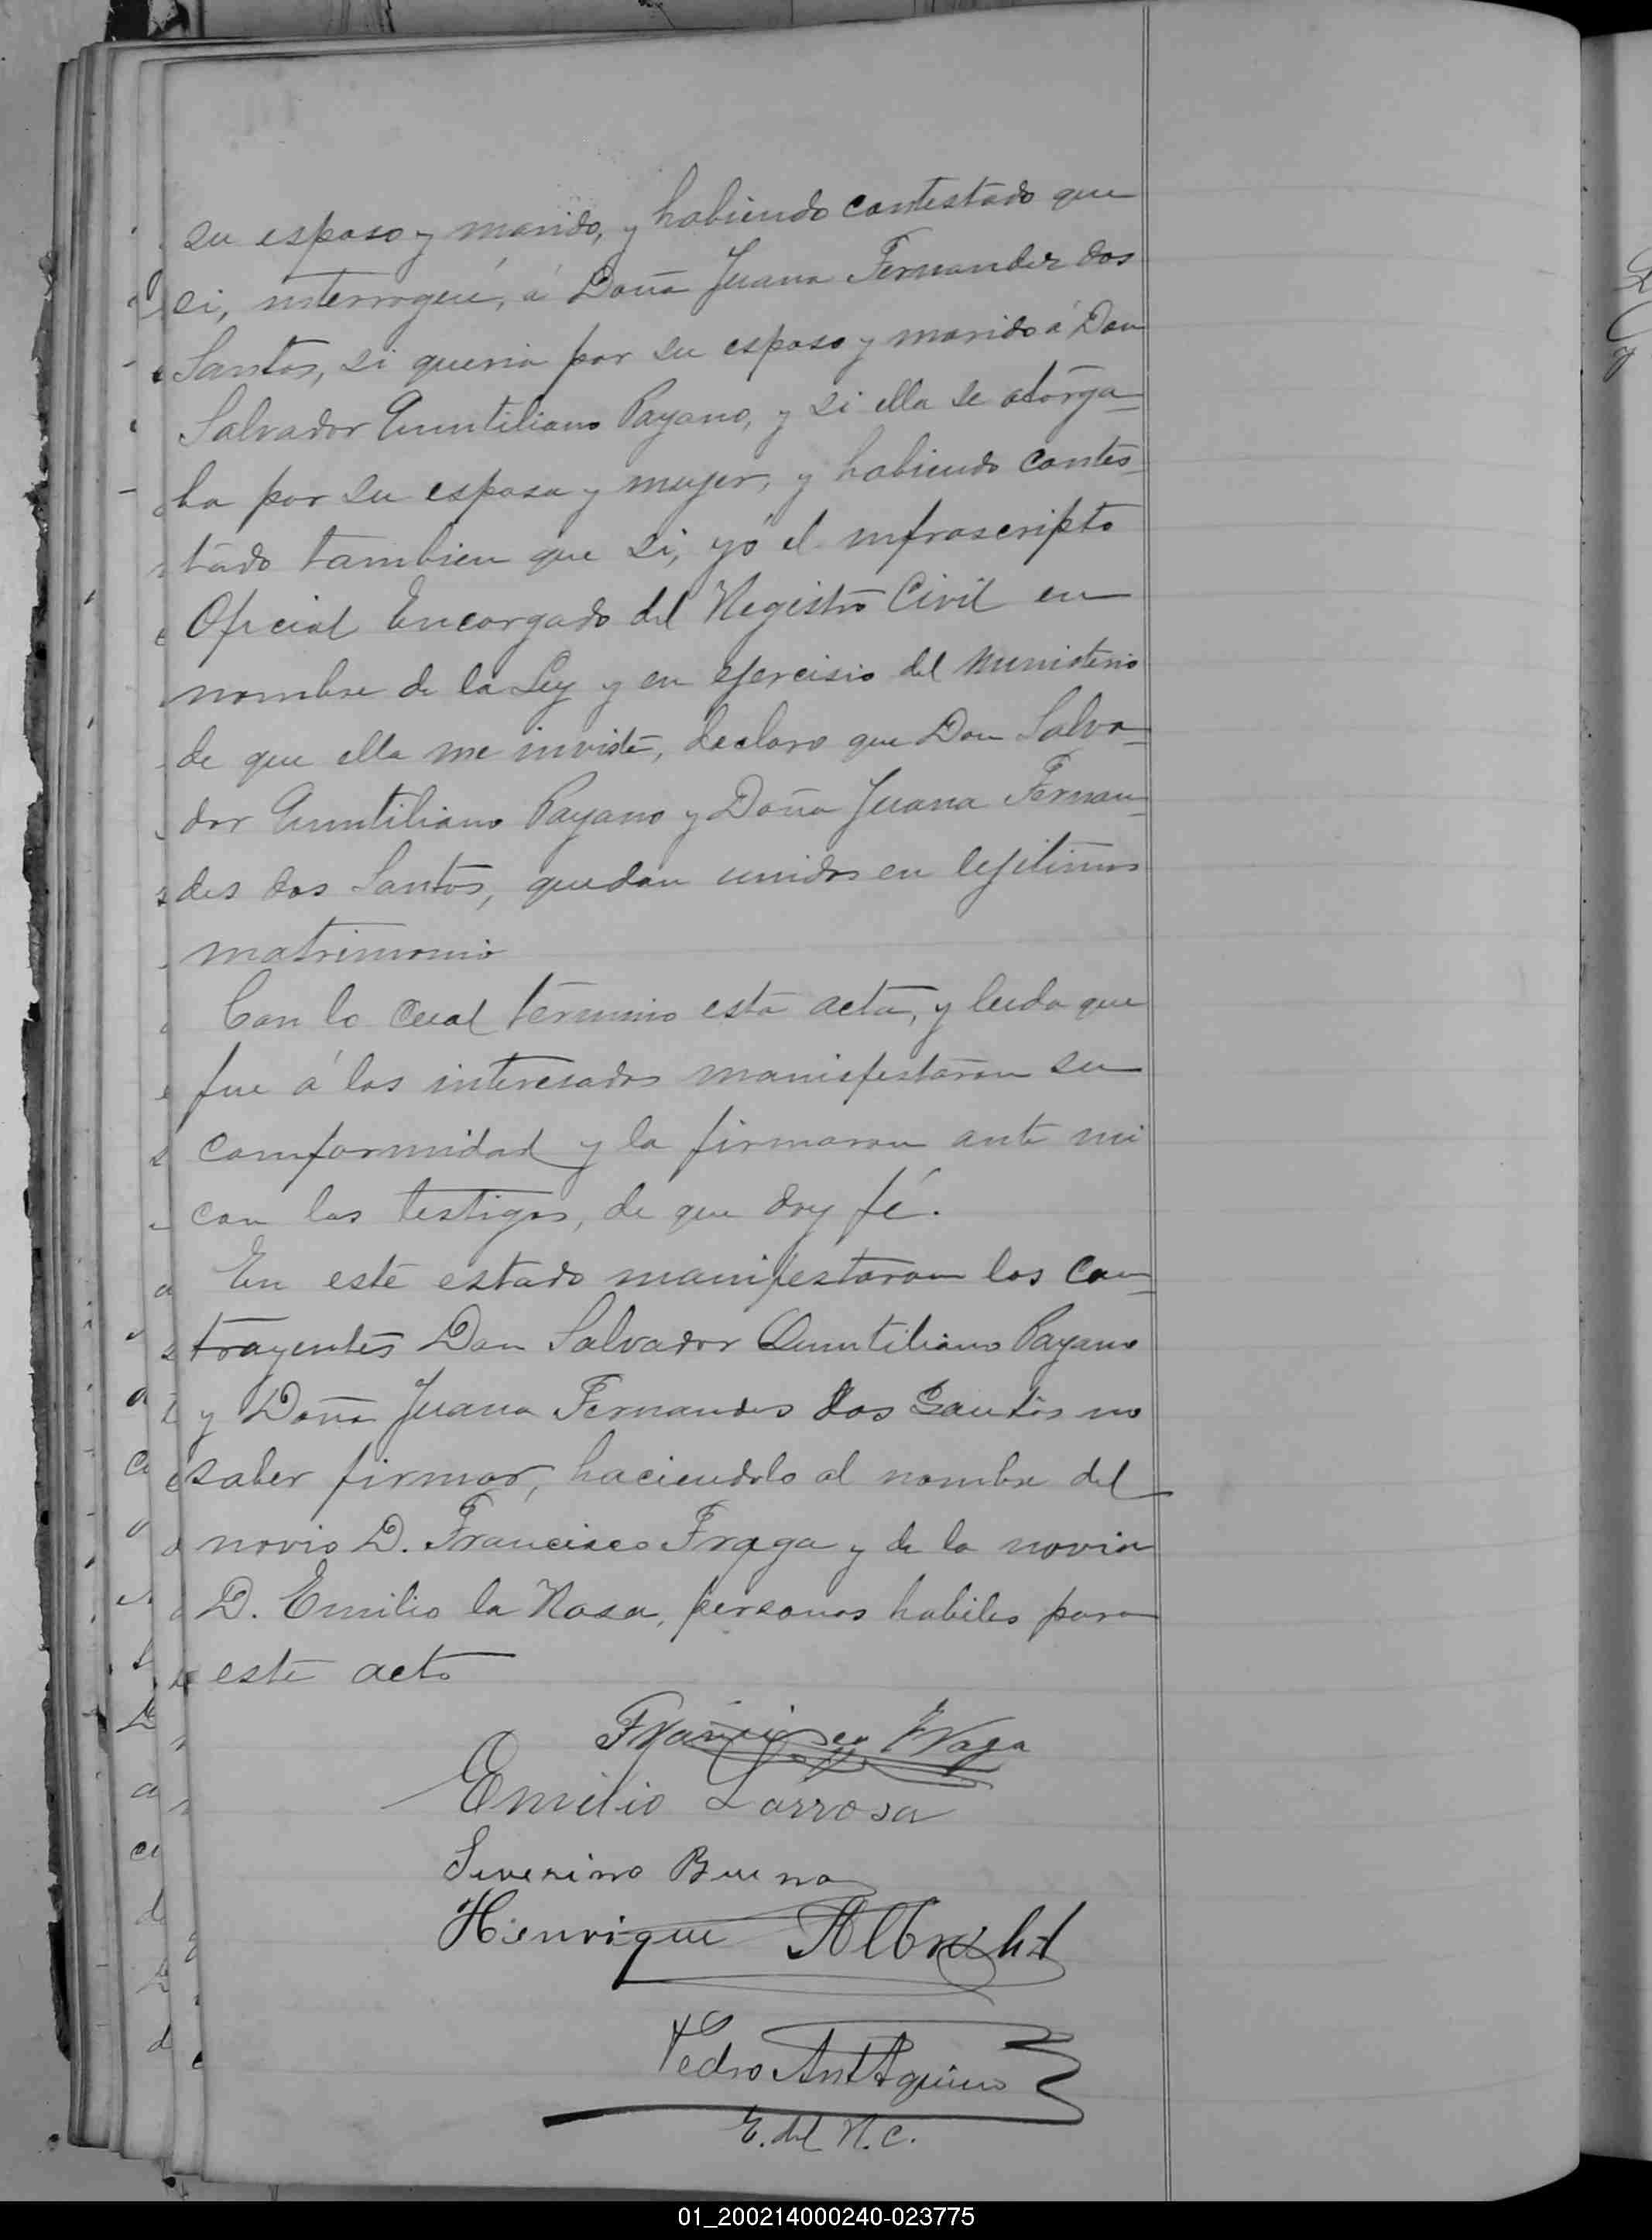 su esposo y marido, y habiendo contestado que
si, interrogué, á Doña Juana Fernandez dos
Santos, si queria por su esposo y marido á Don
Salvador Quintiliano Payano, y si ella se otorga-
ba por su esposa y mujer, y habiendo contes-
tado tambien que si, yó el infrascripto
Oficial Encargado del Registro Civil en
nombre de la Ley y en ejercisio del ministerio
de que ella me inviste, declaro que Don Salva-
dor Quintiliano Payano y Doña Juana Fernan-
des dos Santos, quedan unidos en lejitimo
matrimonio
Con lo cual termino esta acta, y leida que
fue á los interesados manisfestaron su
comformidad y la firmaron ante mi
con los testigos, de que doy fé.
En este estado manifestaron los con-
trayentes Don Salvador Quintiliano Payano
y Doña Juana Fernandes dos Santos no
saber firmar, haciendolo al nombre del
novio D. Francisco Fraga y de la novia
D. Emilio la Rosa, personas habiles para
este acto
Francisco Fraga
Emilio Larrosa
Severino Bueno
Henrique Albrecht
Pedro Ant Aquino
E. del R. C.
01_200214000240-023775